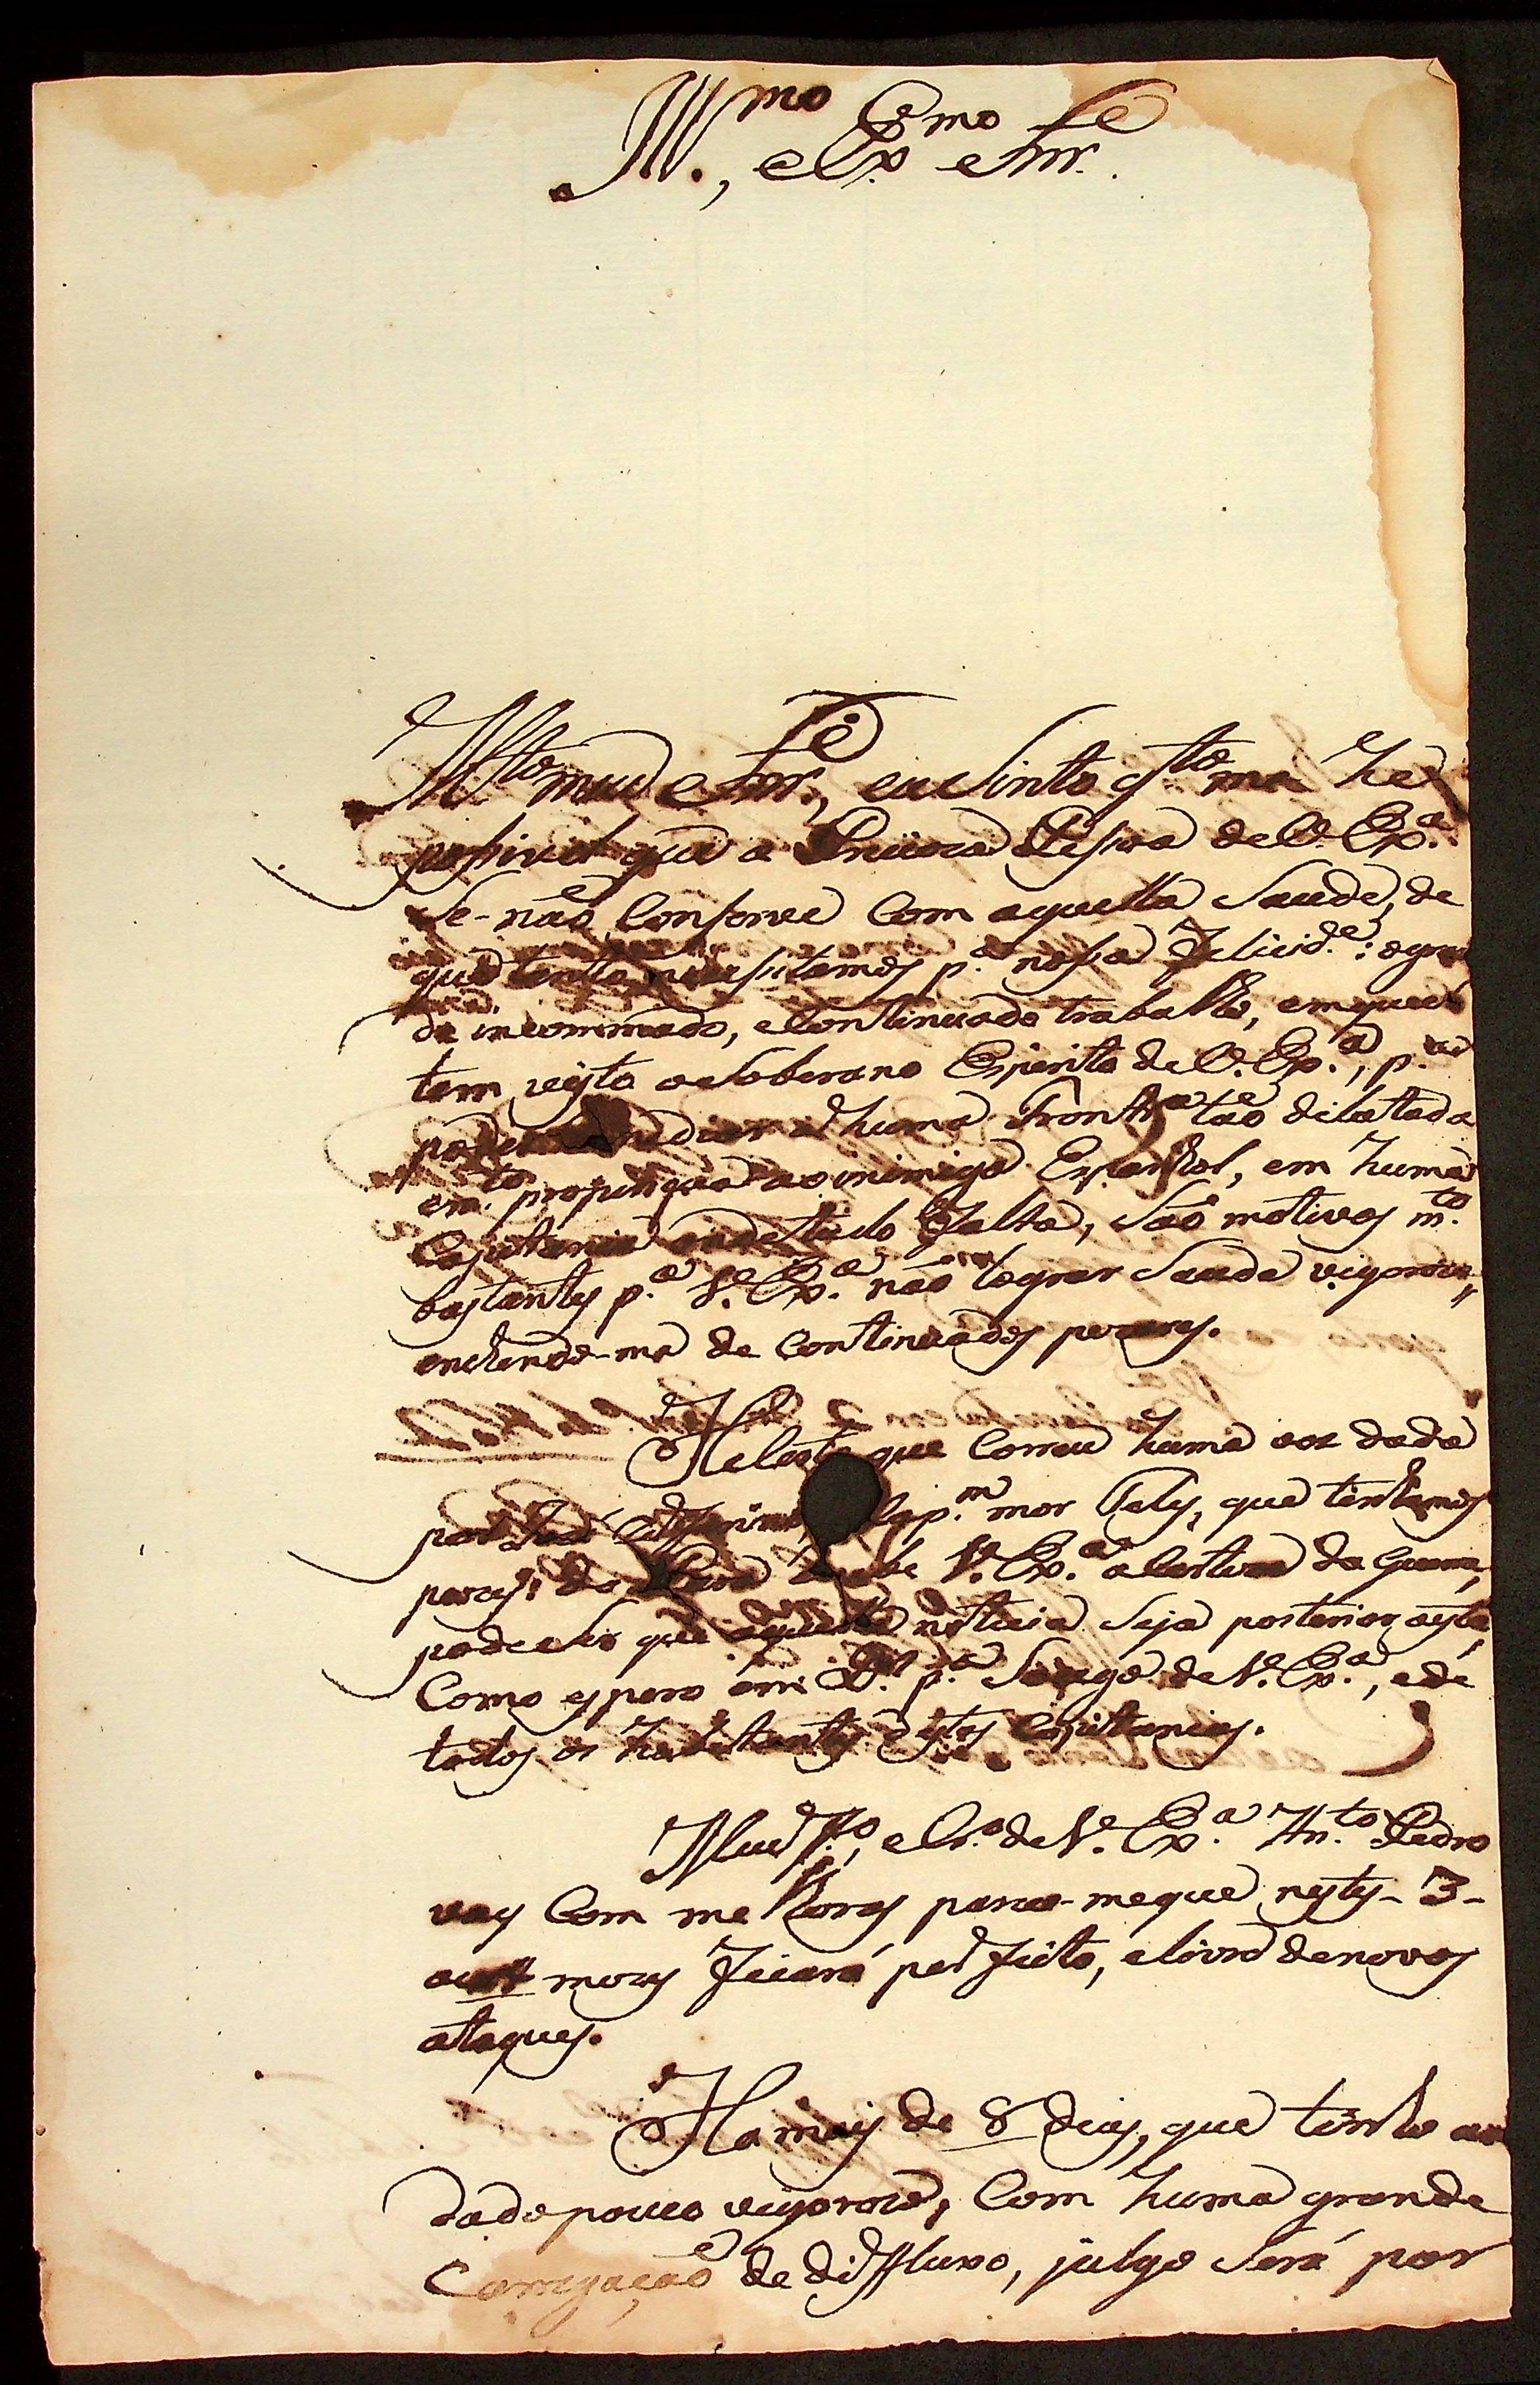 Ill.mo, e Ex.mo Snr.
M.to meu Snr., eu sinto q.to me he
possivel que a Precioza Pessoa de V. Ex.a
se-não conserve com aquella saude, de
que tanto necessitamos p.a nossa felicid.e: o gran
de incommodo, e continuado trabalho, em que
tem visto o soberano Espirito de V. Ex.a, p.a
poder a huma Frontr.a tão dilatada
em proporção ao inimigo Espanhol, em huma
Capitania onde tudo falta, são motivos m.to
bastantes p.a V. Ex.a não lograr saude vigoroza,
enchendo-me de continuados pezares.
He certo que correu huma voz dada
por José Cap.m mor Telles, que tinhamos
pazes: do Pará V. Ex.a a certeza da guerra,
pode ser que aquella noticia seja posterior a esta
como espero em D.s p.a socego de V. Ex.a, e de
todos os habitantes destas Capitanias.
Meu f.o, e cr.o de V. Ex.a An.to Pedro
vay com melhoras parece-me que nestes - 3 -
ou 4 mezes ficará perfeito, e livre de novos
ataques.
Ha mais de 8 dias, que tenho an
dado pouco vigorozo, com huma grande
carregação de difluxo, julgo será por